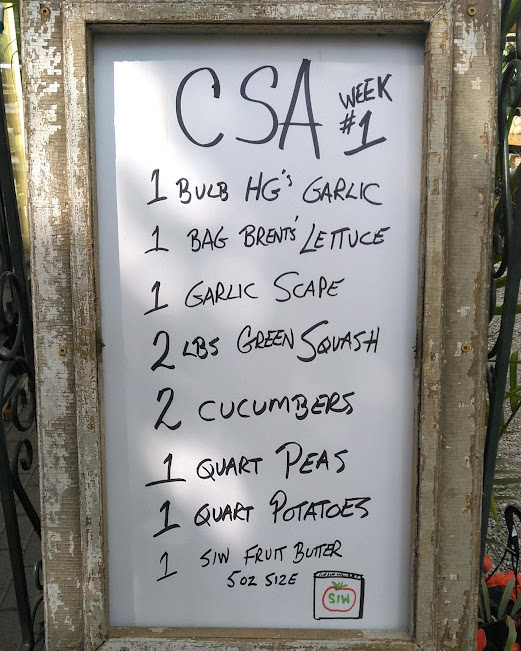 CSA WEEK #1
1 BULB HG's GARLIC
1 BAG BRENTS' LETTUCE
1 GARLIC SCAPE
2 LBS GREEN SQUASH
2 CUCUMBERS
1 QUART PEAS
1 QUART POTATOES
1 SIW FRUIT BUTTER
5OZ SIZE
SIW